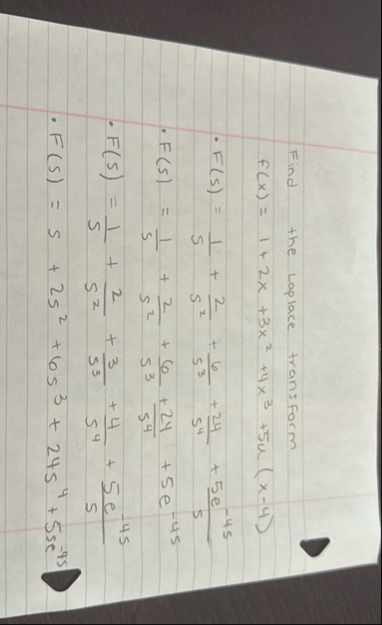 Find the Laplace transform
f(x) = 1 + 2x + 3x² + 4x³ + 5u(x-4)
• F(s) = 1/s + 2/s² + 6/s³ + 24/s⁴ + 5e^-4s/s
• F(s) = 1/s + 2/s² + 6/s³ + 24/s⁴ + 5e^-4s
• F(s) = 1/s + 2/s² + 3/s³ + 4/s⁴ + 5e^-4s/s
• F(s) = s + 2s² + 6s³ + 24s⁴ + 5se^-4s